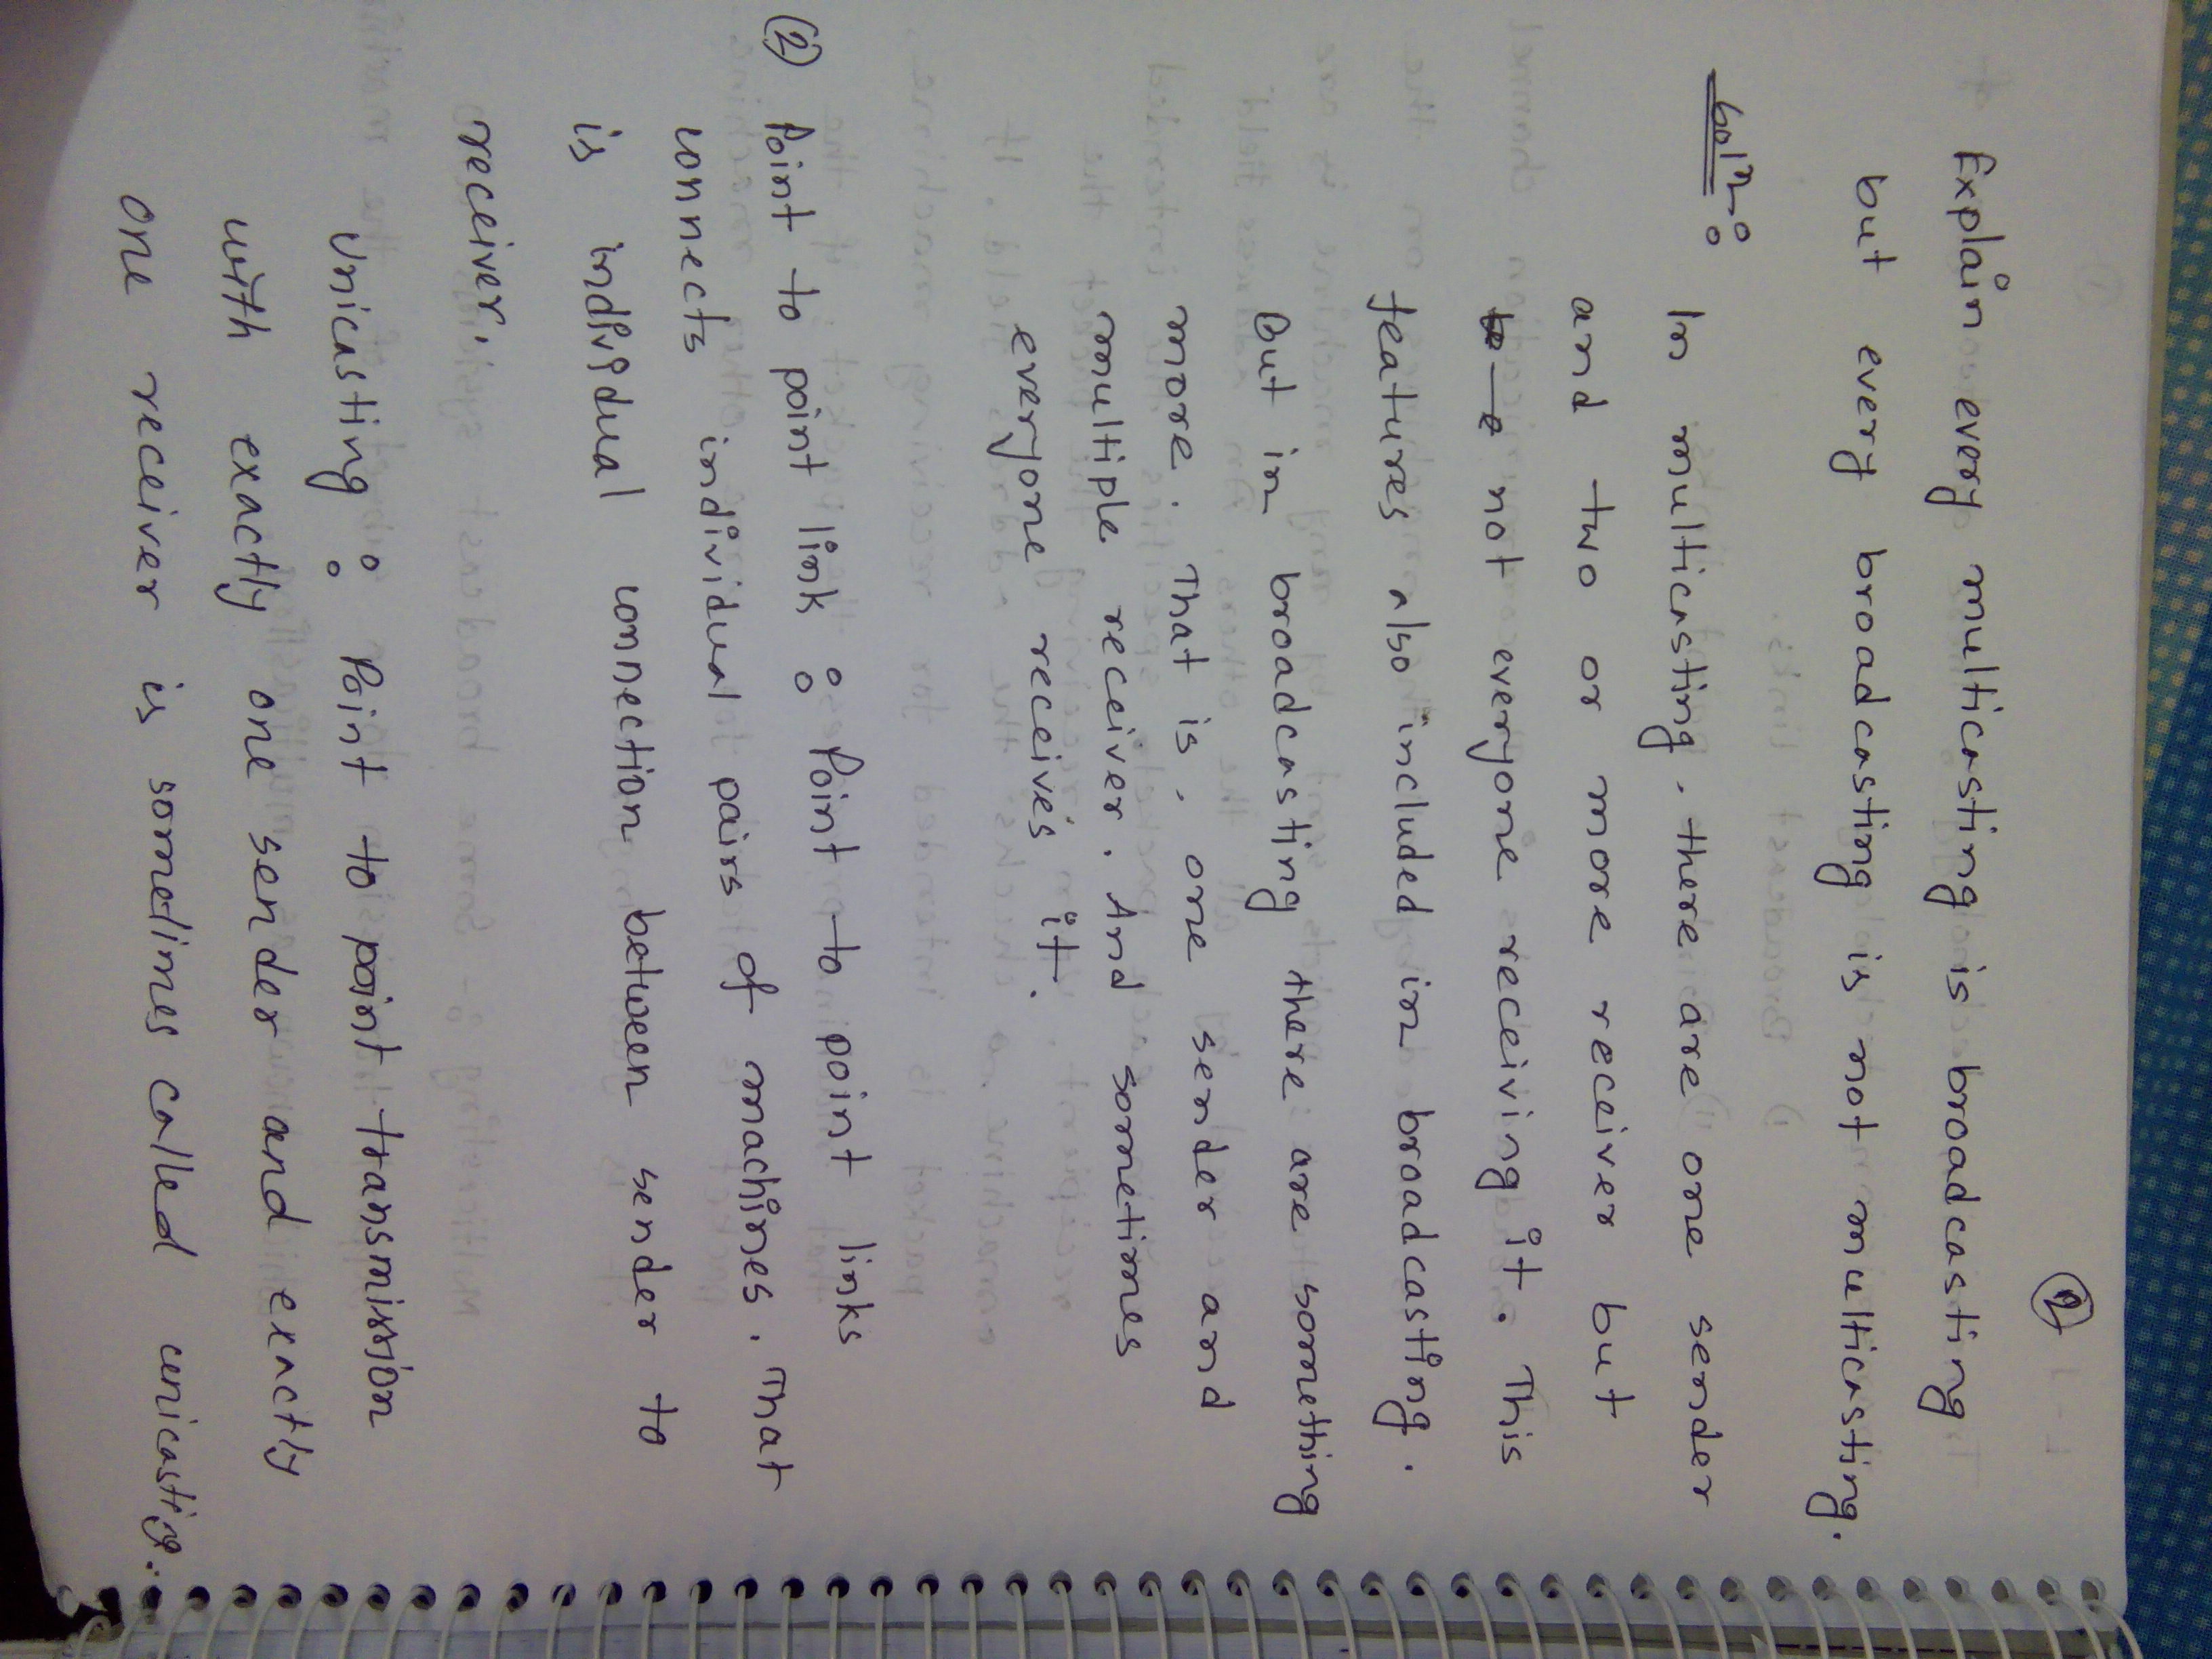 2
Explain every multicasting is broadcasting
but every broadcasting is not multicasting.
Solⁿ:
In multicasting, there are one sender
and two or more receiver but
not everyone receiving it. This
features also included in broadcasting.
But in broadcasting there are something
more. That is, one sender and
multiple receiver. And sometimes
everyone receives it.
(2) Point to point link : Point to point links
connects individual pairs of machines. That
is individual connection between sender to
receiver.
Unicasting : Point to point transmission
with exactly one sender and exactly
one receiver is sometimes called unicasting.